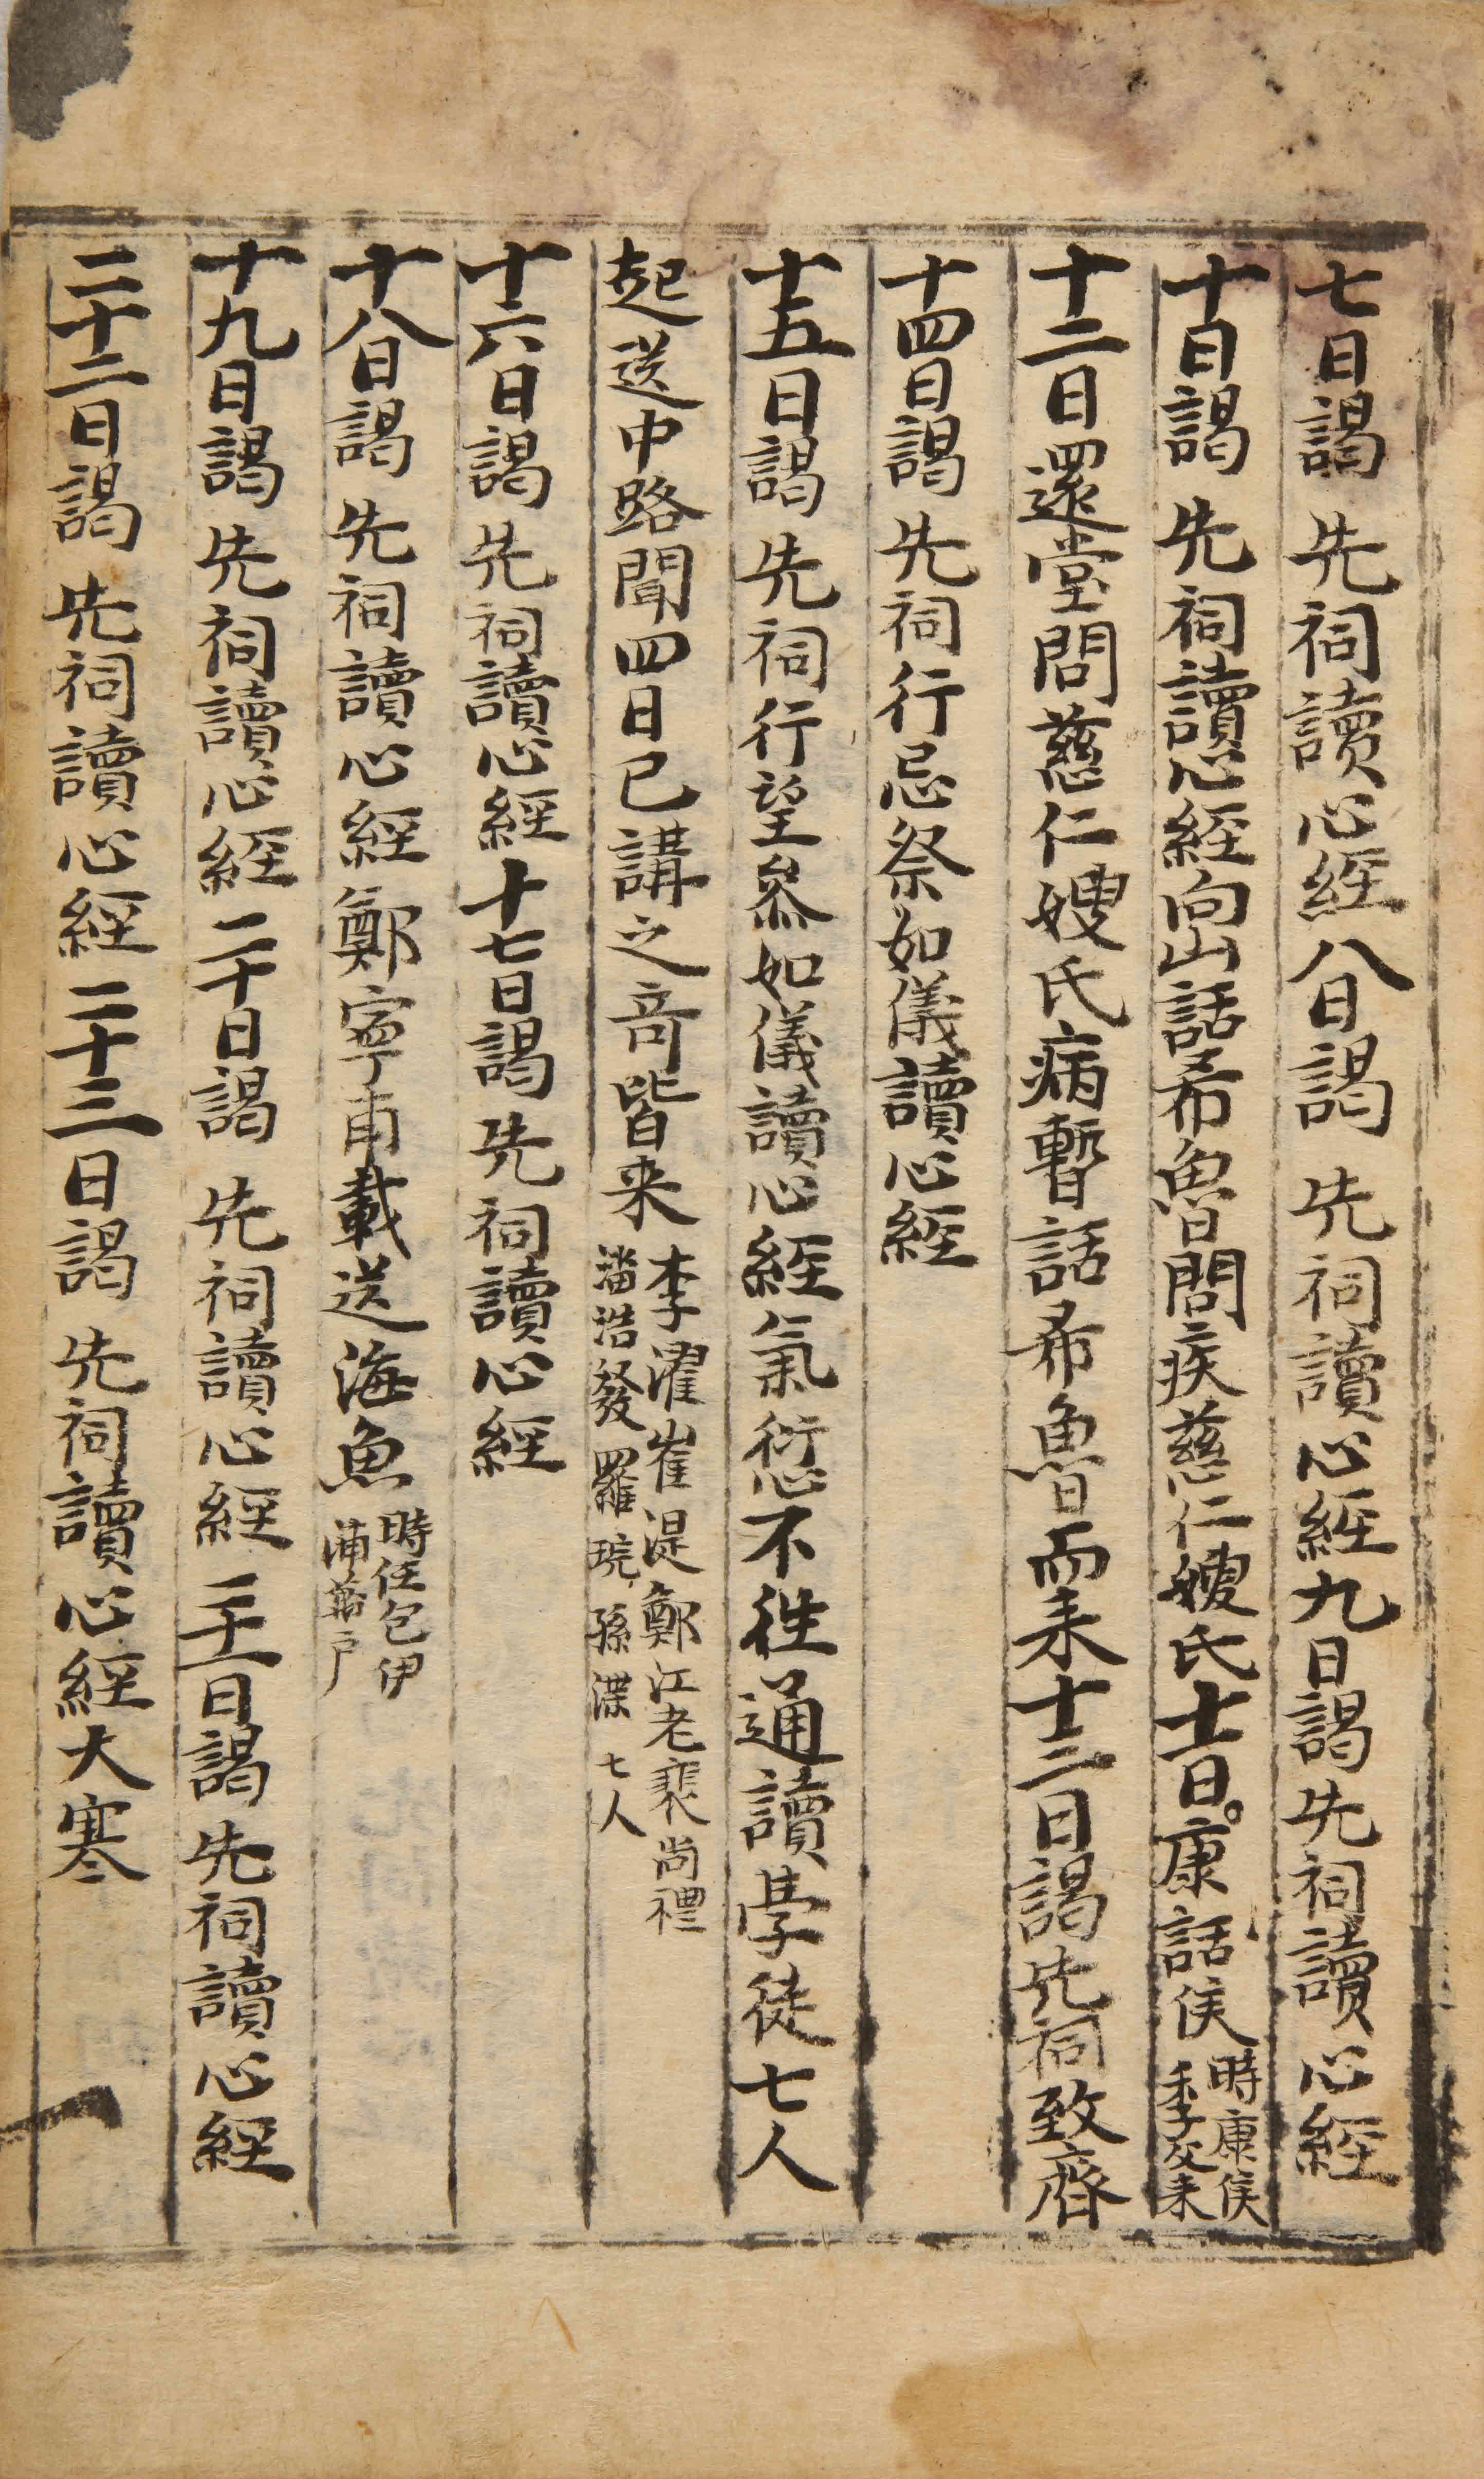 七日謁 先祠讀心經八日謁 先祠讀心經九日謁先祠讀心經
十日謁 先祠讀心經向山話希魯問疾慈仁嫂氏十一日康話侯
時康侯
季父来
十二日還堂問慈仁嫂氏病暫話希魯而来十三日謁先祠致齋
十四日謁 先祠行忌祭如儀讀心經
十五日謁 先祠行望叅如儀讀心經氣愆不徃通讀學徒七人
起送中路聞四日已講之奇皆来
李濯崔湜鄭江老裴尚禮
潘浩發羅琓孫濼七人
十六日謁 先祠讀心經十七日謁 先祠讀心經
十八日謁 先祠讀心經鄭寧甫載送海魚
時任包伊
浦萬户
十九日謁 先祠讀心經二十日謁 先祠讀心經二十一日謁先祠讀心經
二十二日謁 先祠讀心經二十三日謁 先祠讀心經大寒